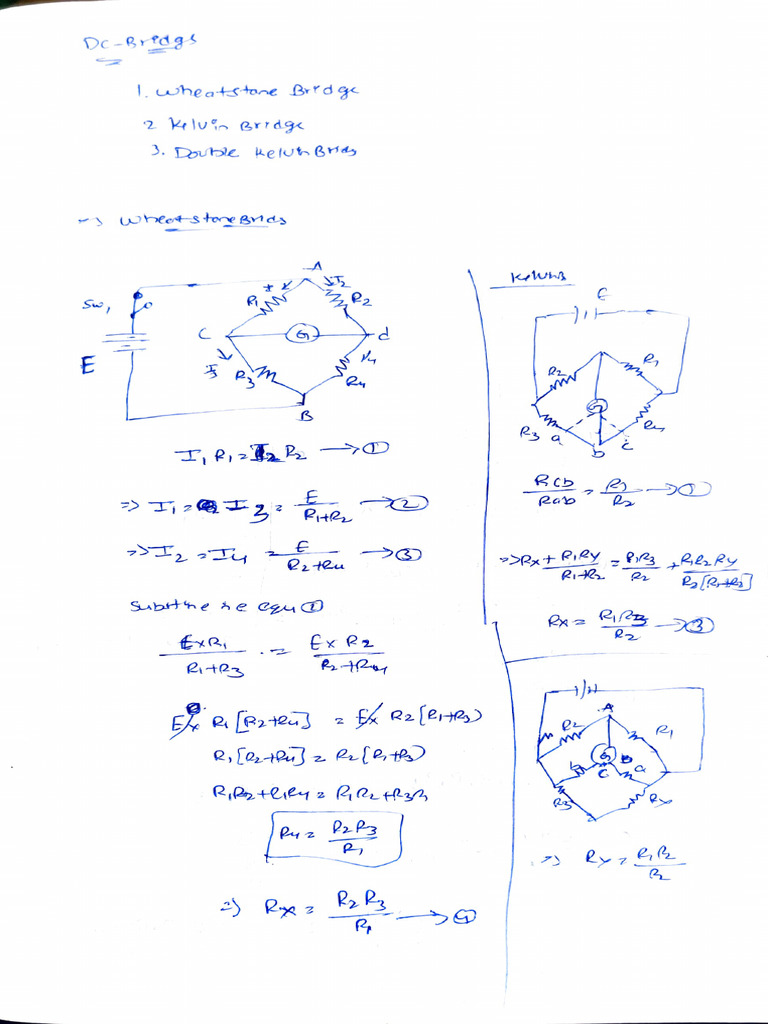 DC-Bridgs
1. Wheatstone Bridge
2 Kelvin Bridge
3. Double Kelvin Brids
→ Wheatstone Brids
A
Sw1
R1
I2
R2
C
G
d
E
I3
R3
I4
R4
B
I1 R1 = I2 R2 → ①
⇒ I1 = I3 = E/(R1+R2) → ②
⇒ I2 = I4 = E/(R2+R4) → ③
equ ①
E×R1/(R1+R3) = E×R2/(R2+R4)
E× R1[R2+R4] = E× R2(R1+R3)
R1[R2+R4] = R2(R1+R3)
R1R2+R1R4 = R1R2+R3R
R4 = R2R3/R1
⇒ Rx = R2R3/R1 → ④
E
R2
R1
G
R3
a
b
c
Rcb/Rab = R1/R2 → ①
⇒ Rx + R1Ry/(R1+R2) = R1R3/R2 + R1R2Ry/R2[R1+R2]
Rx = R1R3/R2 → ③
A
R2
R1
G
b
C
a
R3
⇒ Rx = R1R2/R2